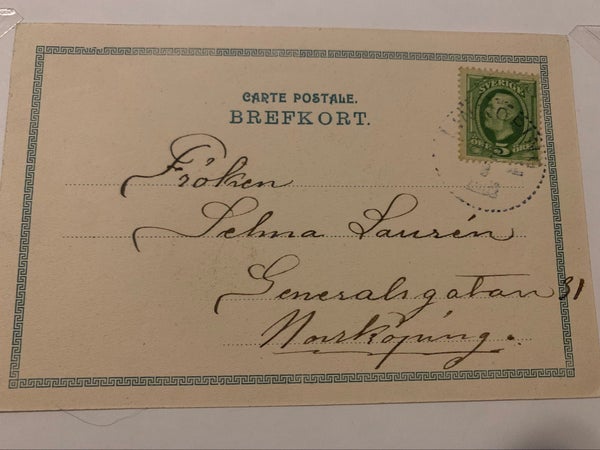 CARTE POSTALE.
BREFKORT.
SVERIGE
5
ÖRE ÖRE
Fröken
Selma Laurén
Generalsgatan 31
Norrköping.